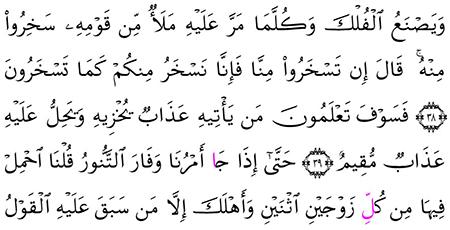 وَيَصْنَعُ ٱلْفُلْكَ وَكُلَّمَا مَرَّ عَلَيْهِ مَلَأٌ مِّن قَوْمِهِۦ سَخِرُوا۟
مِنْهُ ۚ قَالَ إِن تَسْخَرُوا۟ مِنَّا فَإِنَّا نَسْخَرُ مِنكُمْ كَمَا تَسْخَرُونَ
﴿٣٨﴾ فَسَوْفَ تَعْلَمُونَ مَن يَأْتِيهِ عَذَابٌ يُخْزِيهِ وَيَحِلُّ عَلَيْهِ
عَذَابٌ مُّقِيمٌ ﴿٣٩﴾ حَتَّىٰٓ إِذَا جَا أَمْرُنَا وَفَارَ ٱلتَّنُّورُ قُلْنَا ٱحْمِلْ
فِيهَا مِن كُلِّ زَوْجَيْنِ ٱثْنَيْنِ وَأَهْلَكَ إِلَّا مَن سَبَقَ عَلَيْهِ ٱلْقَوْلُ